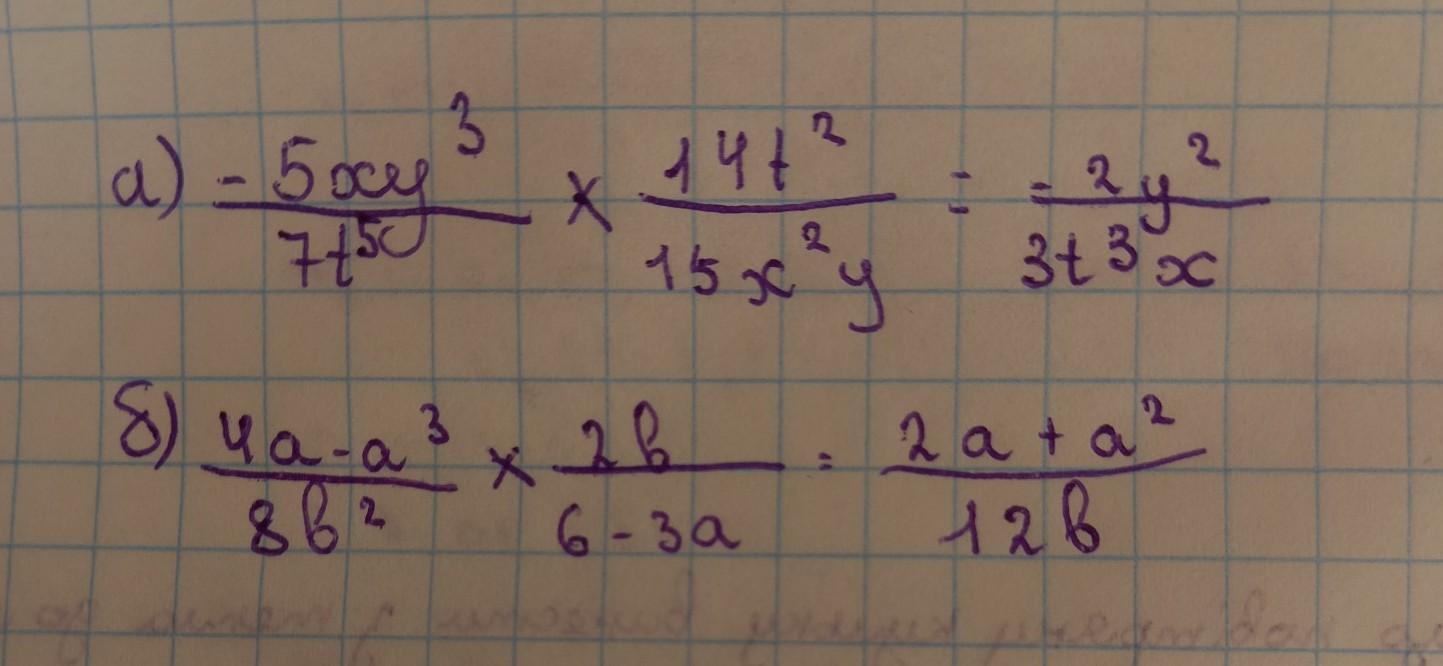 а) -5xy³/7t⁵ × 14t²/15x²y = -2y²/3t³x
б) 4a-a³/8b² × 2b/6-3a = 2a+a²/12b